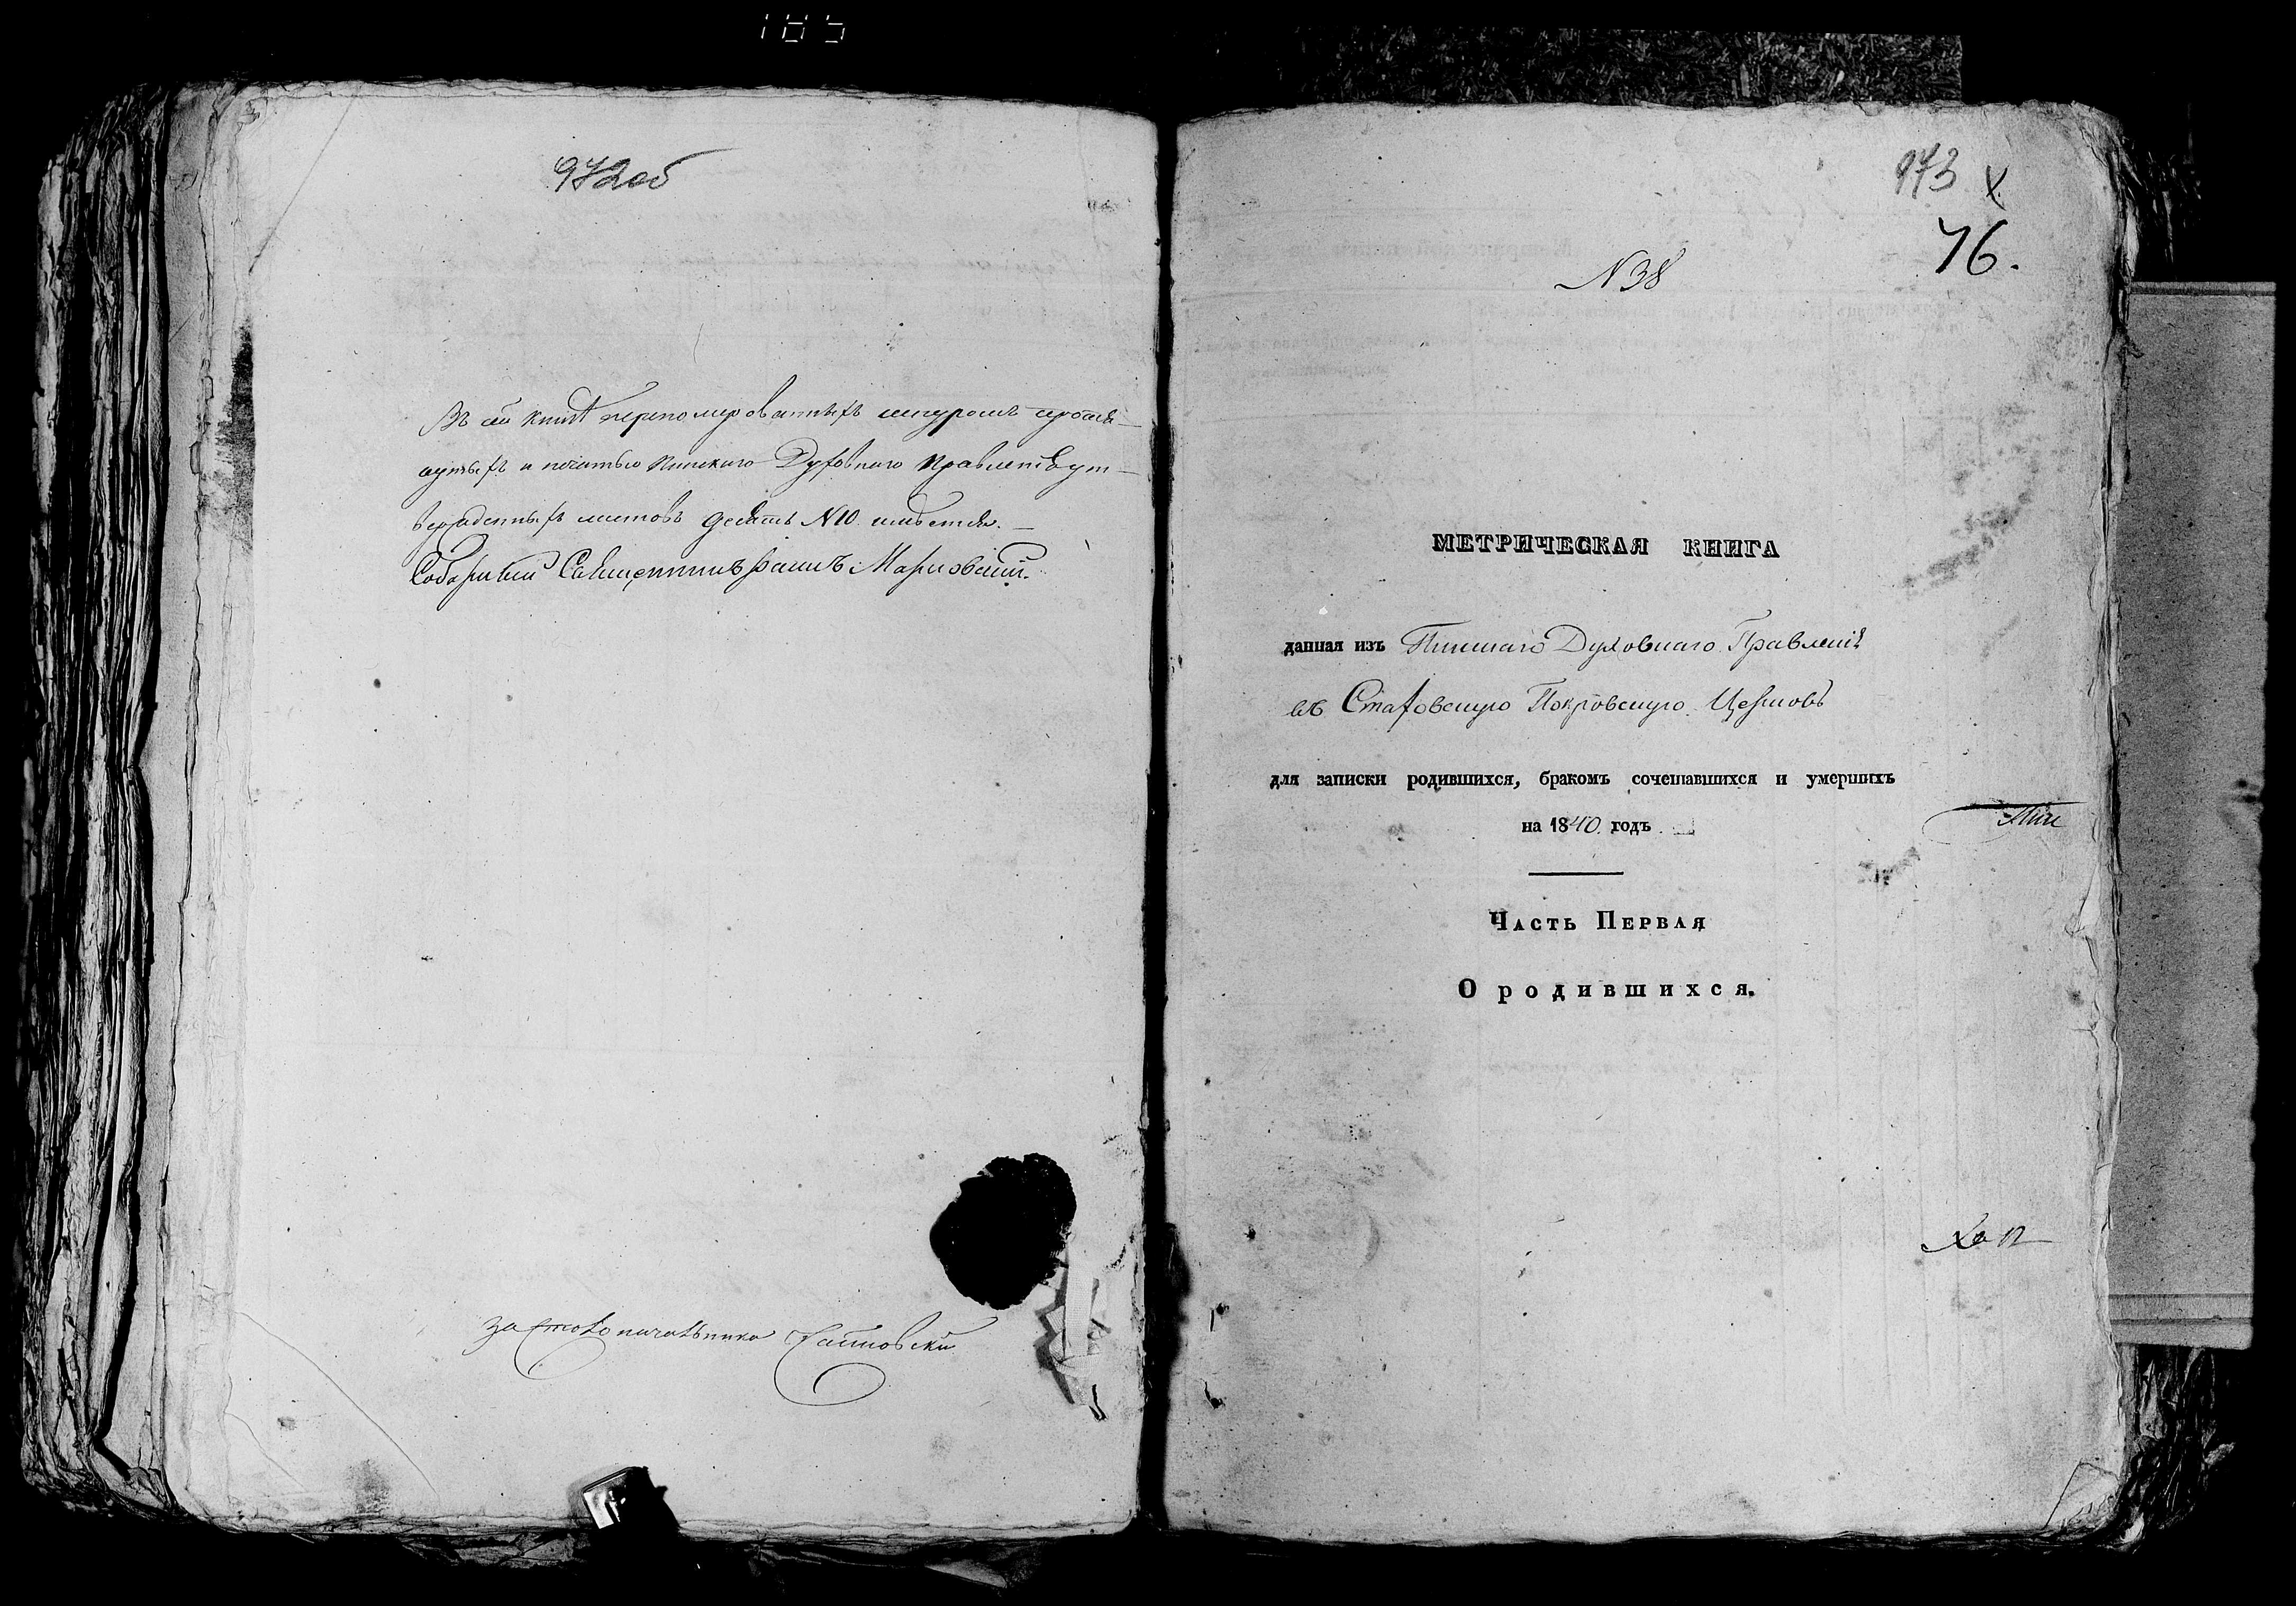 185
972об
Въ сей книгѣ перенумерованныхъ шнуромъ прошн-
урныхъ и печатью Пинскаго Духовнаго Правленія ут-
вержденныхъ листовъ десять N10. имѣется.
Соборный Священникъ Мариовский.
За Столоначальника
973
76.
N38
МЕТРИЧЕСКАЯ КНИГА
данная изъ Пинскаго Духовнаго Правленія
въ Стаховскую Покровскую Церковь
для записки родившихся, бракомъ сочетавшихся и умершихъ
на 1840. годъ
Часть Первая
О родившихся.